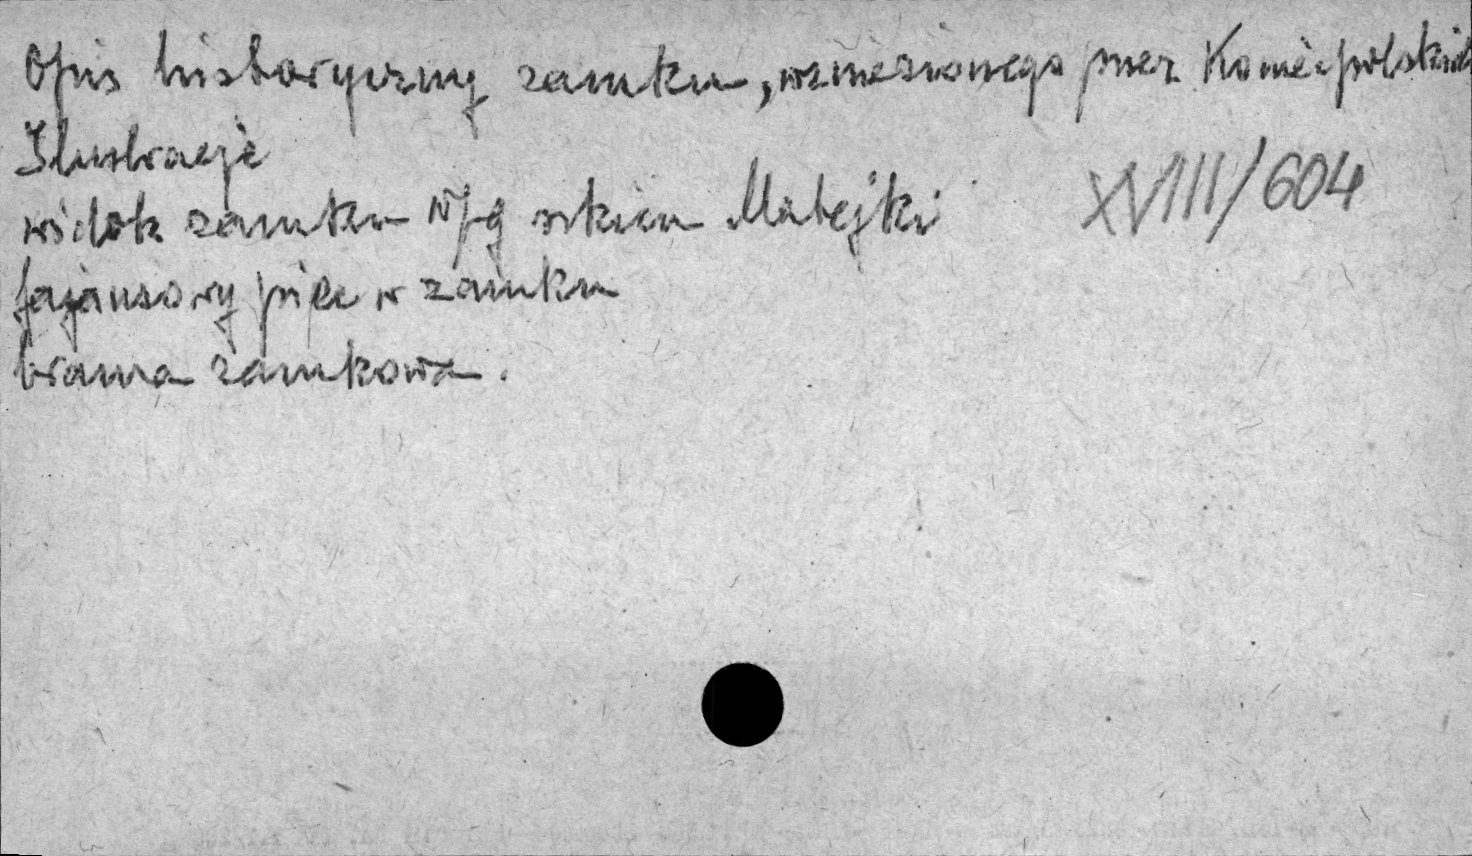 Opis historyczny zamku, wzniesionego przez Koniecpolskich
Ilustracje
widok zamku w/g szkicu Matejki
XVIII/604
fajansowy piec w zamku
brama zamkowa.